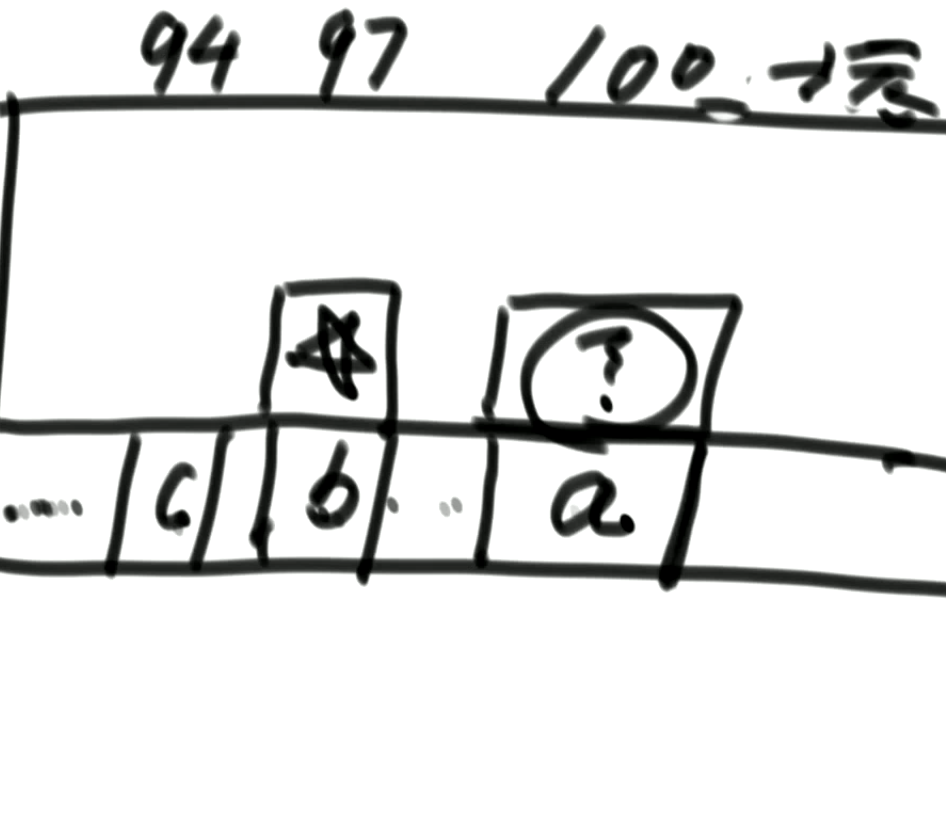 94 97 100
?
c b a